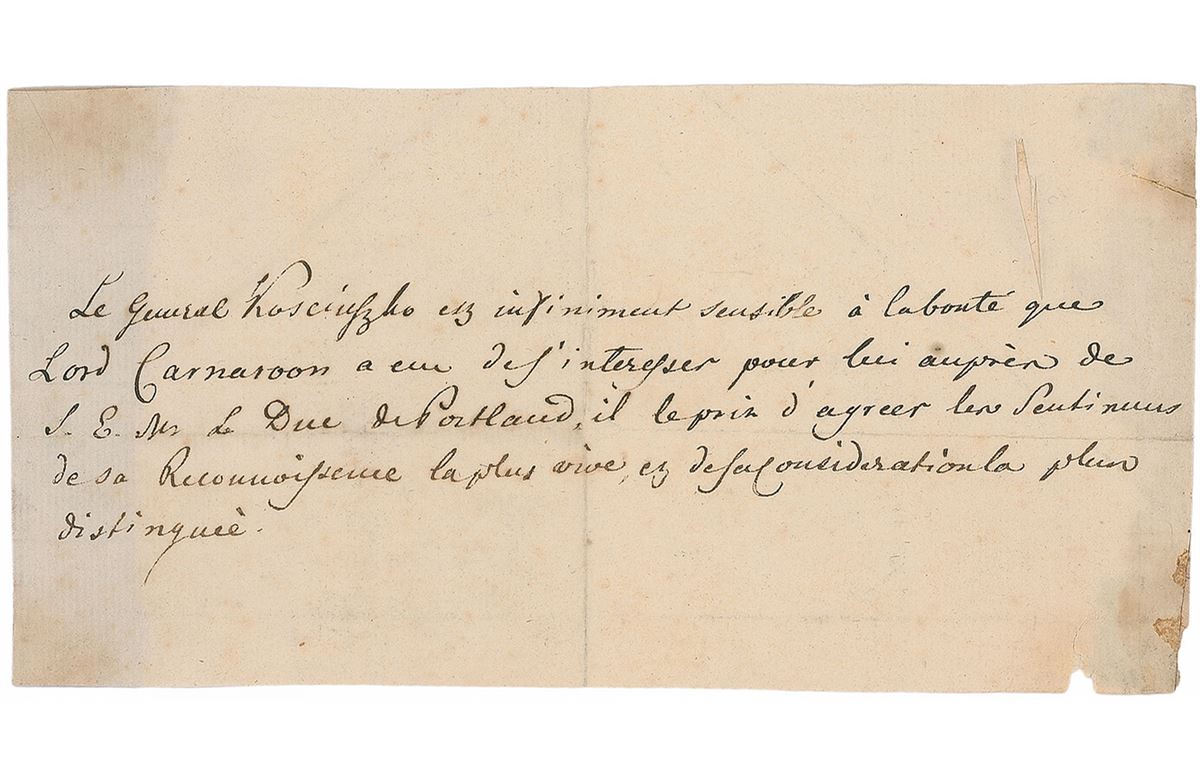 Le General Kosciuszko est infiniment sensible à la bonté que
Lord Carnaroon a eue de s'interesser pour lui auprès de
S. E. Mr Le Duc de Portland, il le prie d'agreer les Sentimens
de sa Reconnoissence la plus vive, et de sa Consideration la plus
distinguée.